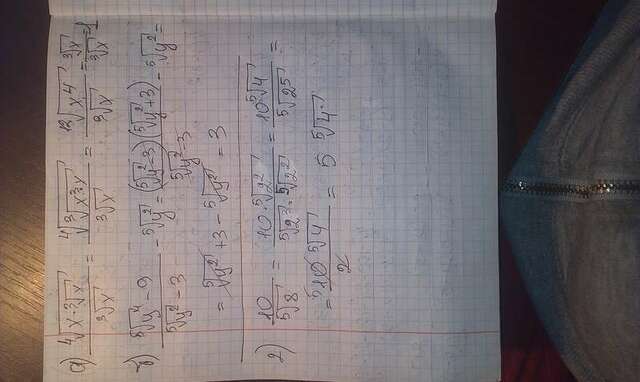 а) ⁴√(x·³√x) / ³√x = ⁴√(³√(x³y)) / ³√x = ¹²√(x⁴) / ³√x = ³√x / ³√x = 1
б) (⁵√(y⁴) − 9) / (⁵√(y²) − 3) − ⁵√(y²) = (⁵√(y²) − 3)(⁵√(y²) + 3) / (⁵√(y²) − 3) − ⁵√(y²) =
= ⁵√(y²) + 3 − ⁵√(y²) = 3
2) 10 / ⁵√8 = 10·⁵√(2²) / (⁵√(2³)·⁵√(2²)) = 10 ⁵√4 / ⁵√(2⁵) =
= 10 ⁵√4 / 2 = 5 ⁵√4